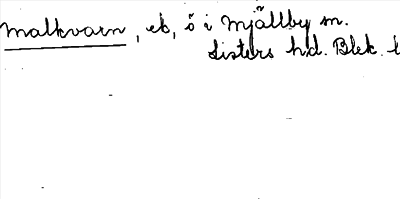 Malkvarn, eb, ö i Mjällby sn.
Listers hd. Blek. l